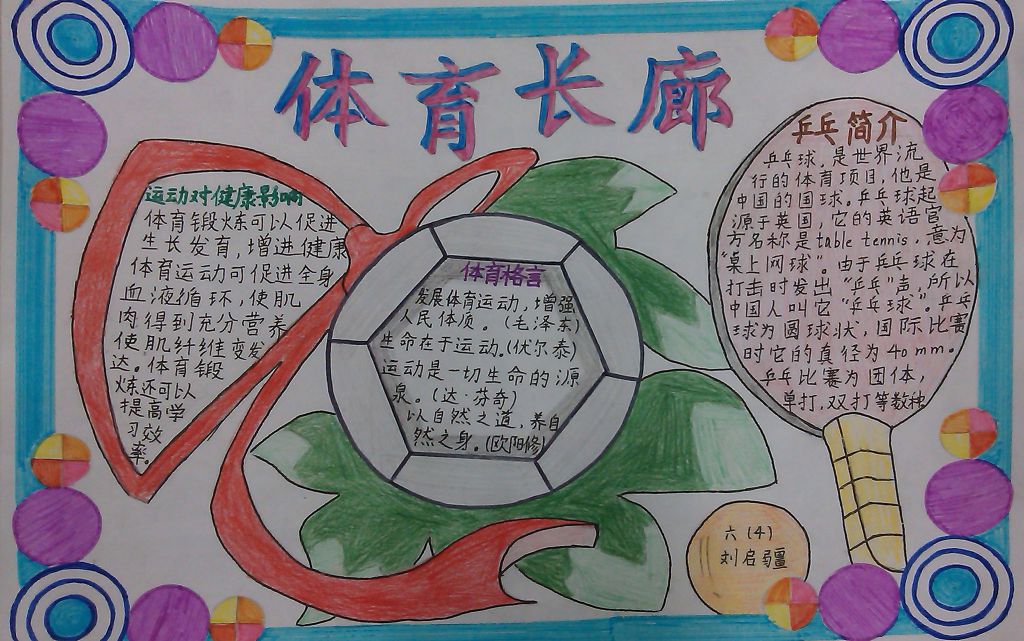 体育长廊
运动对健康影响
体育锻炼可以促进
生长发育,增进健康
体育运动可促进全身
血液循环,使肌
肉得到充分营养
使肌纤维变发
达。体育锻
炼还可以
提高学
习效
率。
体育格言
发展体育运动,增强
人民体质。(毛泽东)
生命在于运动。(伏尔泰)
运动是一切生命的源
泉。(达·芬奇)
以自然之道,养自
然之身。(欧阳修)
乒乓简介
乒乓球,是世界流
行的体育项目,他是
中国的国球。乒乓球起
源于英国,它的英语官
方名称是table tennis,意为
“桌上网球”。由于乒乓球在
打击时发出“乒乓”声,所以
中国人叫它“乒乓球”。乒乓
球为圆球状,国际比赛
时它的直径为40mm。
乒乓比赛为团体,
单打,双打等数种
六(4)
刘启疆